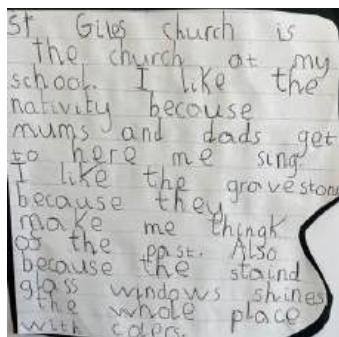 St Giles church is
the church at my
school. I like the
nativity because
mums and dads get
to here me sing.
I like the graveston
because they
make me thingk
of the past. Also
because the staind
glass windows shines
the whole place
with colers.